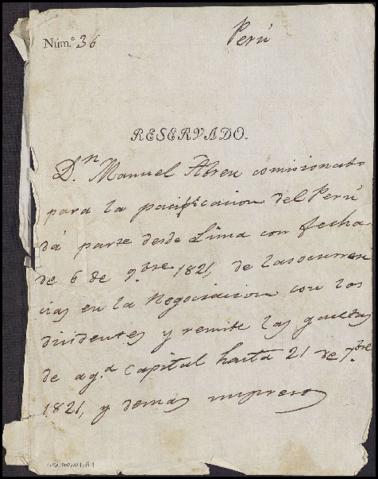 Núm.º 36
Perú
RESERVADO.
D.n Manuel Abreu comisionado
para la pacificacion del Perú
dá parte desde Lima con fecha
de 6 de 9.bre 1821, de las ocurren
cias en la Negociacion con los
disidentes y remite las gacetas
de aq.a Capital hasta 21 de 7.bre
1821, y demas impresos